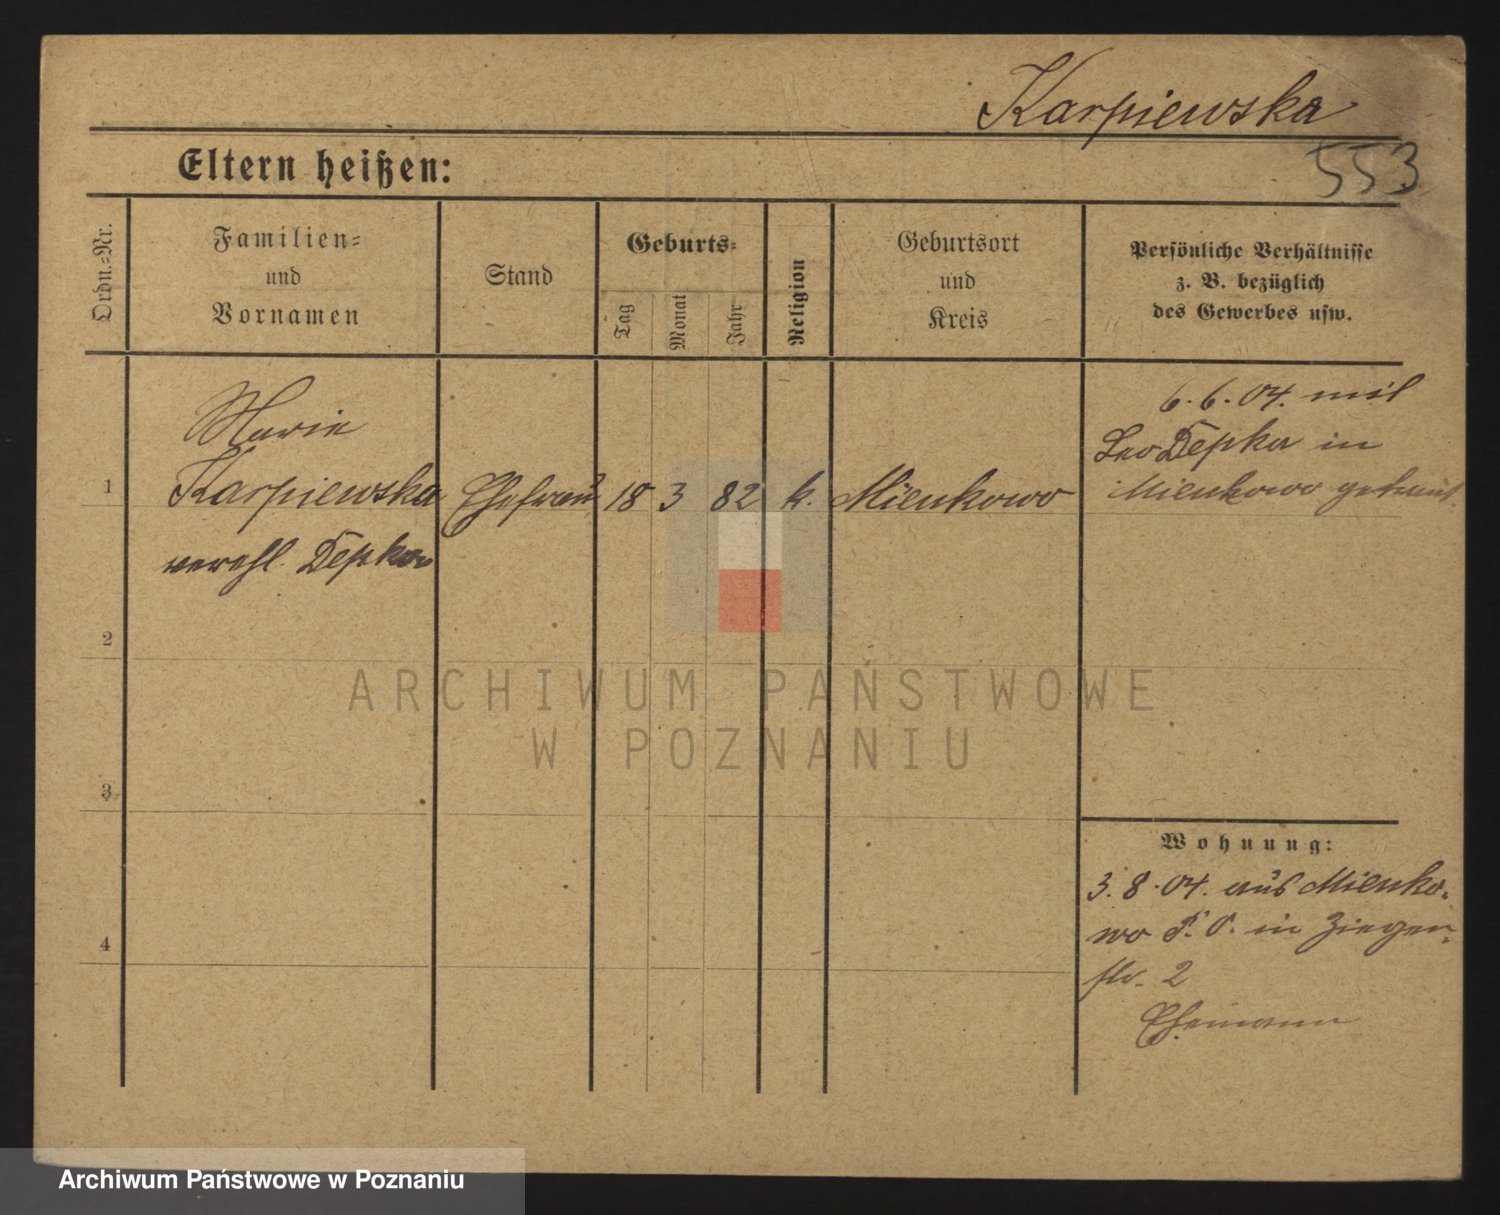 Karpiewska
553
Eltern heißen:
Ordn.-Nr.
Familien-
und
Vornamen
Stand
Geburts-
Tag
Monat
Jahr
Religion
Geburtsort
und
Kreis
Persönliche Verhältnisse
z. B. bezüglich
des Gewerbes usw.
1
Marie
Karpiewska
verehl. Depka
Ehefrau
18
3
82
k.
Mienkowo
6.6.04. mit
Leo Depka in
Mienkowo getraut.
2
3
4
Wohnung:
3.8.04. aus Mienko-
wo P. O. in Ziegen-
str. 2
Ehemann
ARCHIWUM PAŃSTWOWE
W POZNANIU
Archiwum Państwowe w Poznaniu